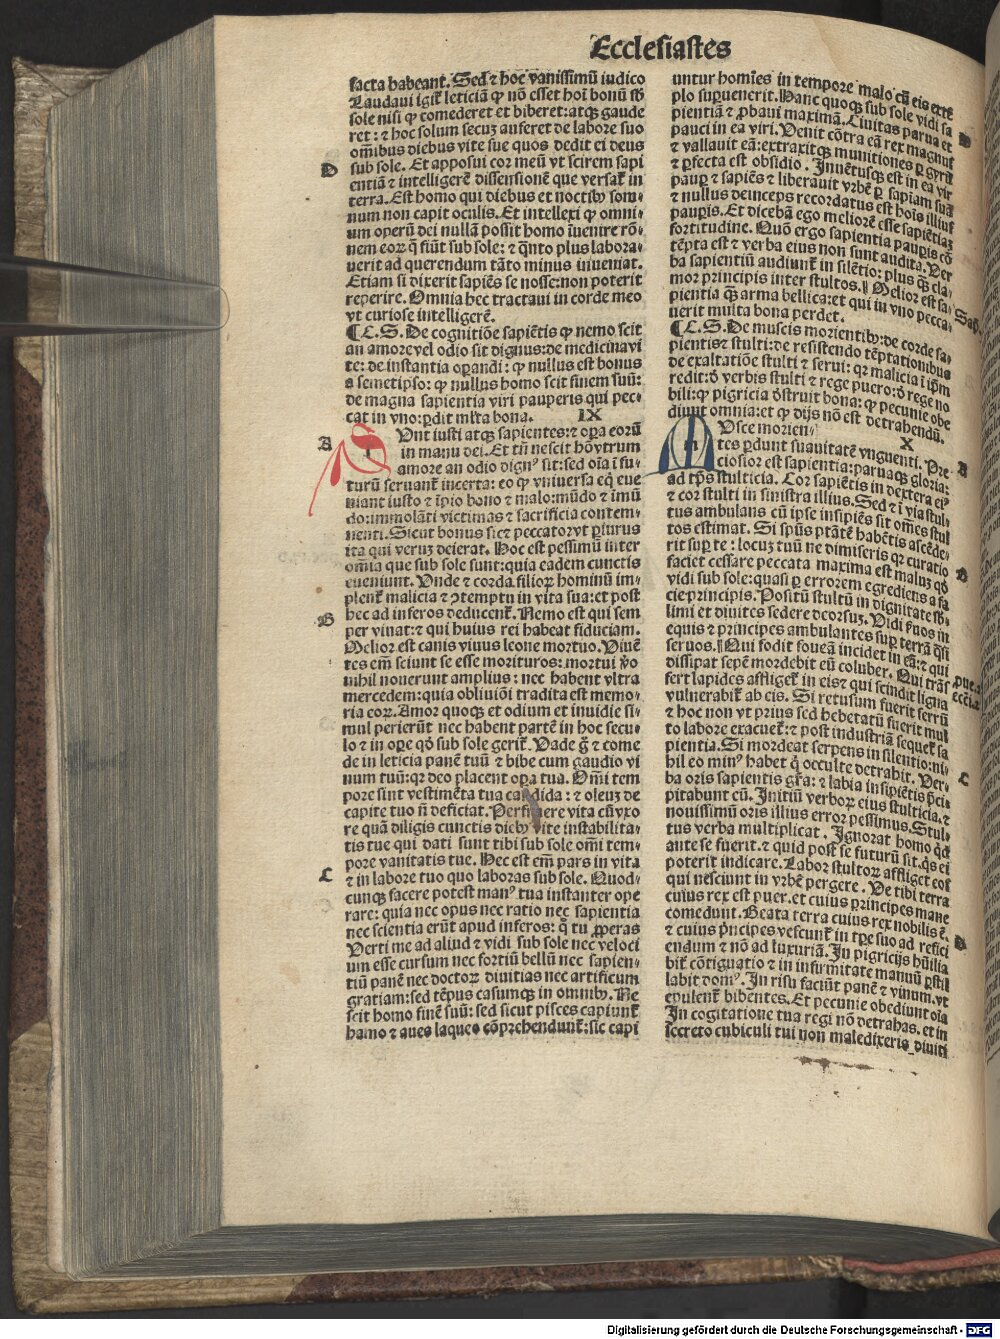 Ecclesiastes
facta habeant. Sed ⁊ hoc vanissimū iudico
Laudaui igit᷑ leticiā ꝙ nō esset hoī bonū sb̄
sole nisi ꝙ comederet et biberet: atqꝫ gaude
ret: ⁊ hoc solum secuꝫ auferet de labore suo
om̄ibus diebus vite sue quos dedit ei deus
D
sub sole. Et apposui cor meū vt scirem sapi
entiā ⁊ intelligerē dissensionē que versat᷑ in
terra. Est homo qui diebus et noctibꝰ som⸗
num non capit oculis. Et intellexi ꝙ omni⸗
um operū dei nullā possit homo īuenire rō⸗
nem eoꝝ q̄ fiūt sub sole: ⁊ q̄nto plus labora⸗
uerit ad querendum tāto minus inueniat.
Etiam si dixerit sapiēs se nosse: non poterit
reperire. Omnia hec tractaui in corde meo
vt curiose intelligerē.
¶ C. S. De cognitiōe sapiētis ꝙ nemo scit
an amore vel odio sit dignus: de medicina vi
te: de instantia oꝑandi: ꝙ nullus est bonus
a semetipso: ꝙ nullus homo scit finem suū:
de magna sapientia viri pauperis qui pec⸗
cat in vno: ꝑdit ml̄ta bona. IX
A
SVnt iusti atqꝫ sapientes: ⁊ oꝑa eorū
in manu dei. Et tn̄ nescit hō vtrum
amore an odio dignꝰ sit: sed oīa ī fu⸗
turū seruant᷑ incerta: eo ꝙ vniuersa eq̄ eue
niant iusto ⁊ īpio bono ⁊ malo: mūdo ⁊ īmū
do: immolāti victimas ⁊ sacrificia contem⸗
nenti. Sicut bonus sic ⁊ peccator vt ꝑiurus
ita qui veruꝫ deierat. Hoc est pessimū inter
om̄ia que sub sole sunt: quia eadem cunctis
eueniunt. Vnde ⁊ corda filioꝝ hominū im⸗
plent᷑ malicia ⁊ ↄtemptu in vita sua: et post
hec ad inferos deducent᷑. Nemo est qui sem
B
per viuat: ⁊ qui huius rei habeat fiduciam.
Melior est canis viuus leone mortuo. Viuē
tes em̄ sciunt se esse morituros: mortui v̄o
nihil nouerunt amplius: nec habent vltra
mercedem: quia obliuiōi tradita est memo⸗
ria eoꝝ. Amor quoqꝫ et odium et inuidie si⸗
mul perierūt nec habent partē in hoc secu⸗
lo ⁊ in oꝑe qd̄ sub sole gerit᷑. Vade g̊ ⁊ come
de in leticia panē tuū ⁊ bibe cum gaudio vi
num tuū: qꝛ deo placent oꝑa tua. Om̄i tem
pore sint vestimēta tua candida: ⁊ oleuꝫ de
capite tuo nō deficiat. Perfruere vita cū vxo
re quā diligis cunctis diebꝰ vite instabilita⸗
tis tue qui dati sunt tibi sub sole om̄i tem⸗
pore vanitatis tue. Hec est em̄ pars in vita
C
⁊ in labore tuo quo laboras sub sole. Quod⸗
cunqꝫ facere potest manꝰ tua instanter ope
rare: quia nec opus nec ratio nec sapientia
nec scientia erūt apud inferos: q̊ tu ꝓperas
Verti me ad aliud ⁊ vidi sub sole nec veloci
um esse cursum nec fortiū bellū nec sapien⸗
tiū panē nec doctoꝝ diuitias nec artificum
gratiam: sed tēpus casumqꝫ in omnibꝰ. Ne
scit homo finē suū: sed sicut pisces capiunt᷑
hamo ⁊ aues laqueo cōp̄rehendunt᷑: sic capi
untur homīes in tempore malo cū eis exte
plo suꝑuenerit. Hanc quoqꝫ sub sole vidi sa
D
pientiā ⁊ ꝓbaui maximā. Ciuitas parua et
pauci in ea viri. Venit cōtra eā rex magnus
⁊ vallauit eā: extraxitqꝫ munitiones ꝑ gyrū
⁊ ꝑfecta est obsidio. Inuētusqꝫ est in ea vir
pauꝑ ⁊ sapiēs ⁊ liberauit vrbē ꝑ sapiam suā
⁊ nullus deinceps recordatus est hois illius
pauꝑis. Et dicebā ego meliorē esse sapiētiaꝫ
fortitudine. Quō ergo sapientia pauꝑis cō
tēpta est ⁊ verba eius non sunt audita. Ver
ba sapientiū audiunt᷑ in silētio: plus q̄ꝫ cla⸗
mor principis inter stultos. Melior est sa⸗
pientia q̄ꝫ arma bellica: et qui in vno pecca⸗
Sap.
uerit multa bona perdet.
¶ C. S. De muscis morientibꝰ: de corde sa⸗
pientis ⁊ stulti: de resistendo tēptationibus
de exaltatiōe stulti ⁊ serui: qꝛ malicia ī ip̄m
redit: d̄ verbis stulti ⁊ rege puero: d̄ rege no
bili: ꝙ pigricia d̄struit bona: ꝙ pecunie obe
diunt omnia: et ꝙ dijs nō est detrahendū.
X
MVsce morien⸗
tes ꝑdunt suauitatē vnguenti. Pre
A
ciosior est sapientia: paruaqꝫ gloria:
ad tp̄s stulticia. Cor sapiētis in dextera eiꝰ
⁊ cor stulti in sinistra illius. Sed ⁊ ī via stul⸗
tus ambulans cū ipse insipiēs sit om̄es stul
tos estimat. Si sp̄us ptātē habētis ascēde⸗
rit suꝑ te: locuꝫ tuū ne dimiseris qꝛ curatio
faciet cessare peccata maxima est maluꝫ qd̄
B
vidi sub sole: quasi ꝑ errorem egrediens a fa
cie principis. Positū stultū in dignitate sb̄⸗
limi et diuites sedere deorsuꝫ. Vidi s̄uos in
equis ⁊ principes ambulantes suꝑ terrā q̄si
seruos. Qui fodit foueā incidet in eā: ⁊ qui
dissipat sepē mordebit eū coluber. Qui trās
fert lapides affliget᷑ in eis ⁊ qui scindit ligna
vulnerabit᷑ ab eis. Si retusum fuerit ferrū
⁊ hoc non vt prius sed hebetatū fuerit mul
to labore exacuet᷑: ⁊ post industriā sequet᷑ sa
pientia. Si mordeat serpens in silentio: ni⸗
hil eo minꝰ habet q̇ occulte detrahit. Ver⸗
C
ba oris sapientis gr̄a: ⁊ labia insipiētis p̄ci⸗
pitabunt eū. Initiū verboꝝ eiꝰ stulticia: ⁊
nouissimū oris illius error pessimus. Stul⸗
tus verba multiplicat. Ignorat homo qd̄
ante se fuerit: ⁊ quid post se futurū sit. q̇s ei
poterit indicare. Labor stultoꝝ affliget eos
qui nesciunt in vrbē pergere. Ve tibi terra
cuius rex est puer: et cuius principes mane
comedunt. Beata terra cuius rex nobilis ē:
⁊ cuius p̄ncipes vescunt᷑ in tꝑe suo ad refici
D
endum ⁊ nō ad luxuriā. In pigricijs hūilia
bit᷑ cōtignatio ⁊ in infirmitate manuū ꝑstil
labit domꝰ. In risu faciūt panē ⁊ vinum. vt
epulent᷑ bibentes. Et pecunie obediunt oīa
In cogitatione tua regi nō detrahas. et in
secreto cubiculi tui non maledixeris diuiti
Digitalisierung gefördert durch die Deutsche Forschungsgemeinschaft - DFG